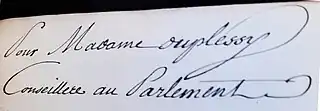 Pour Madame duplessy
Conseillere au Parlement